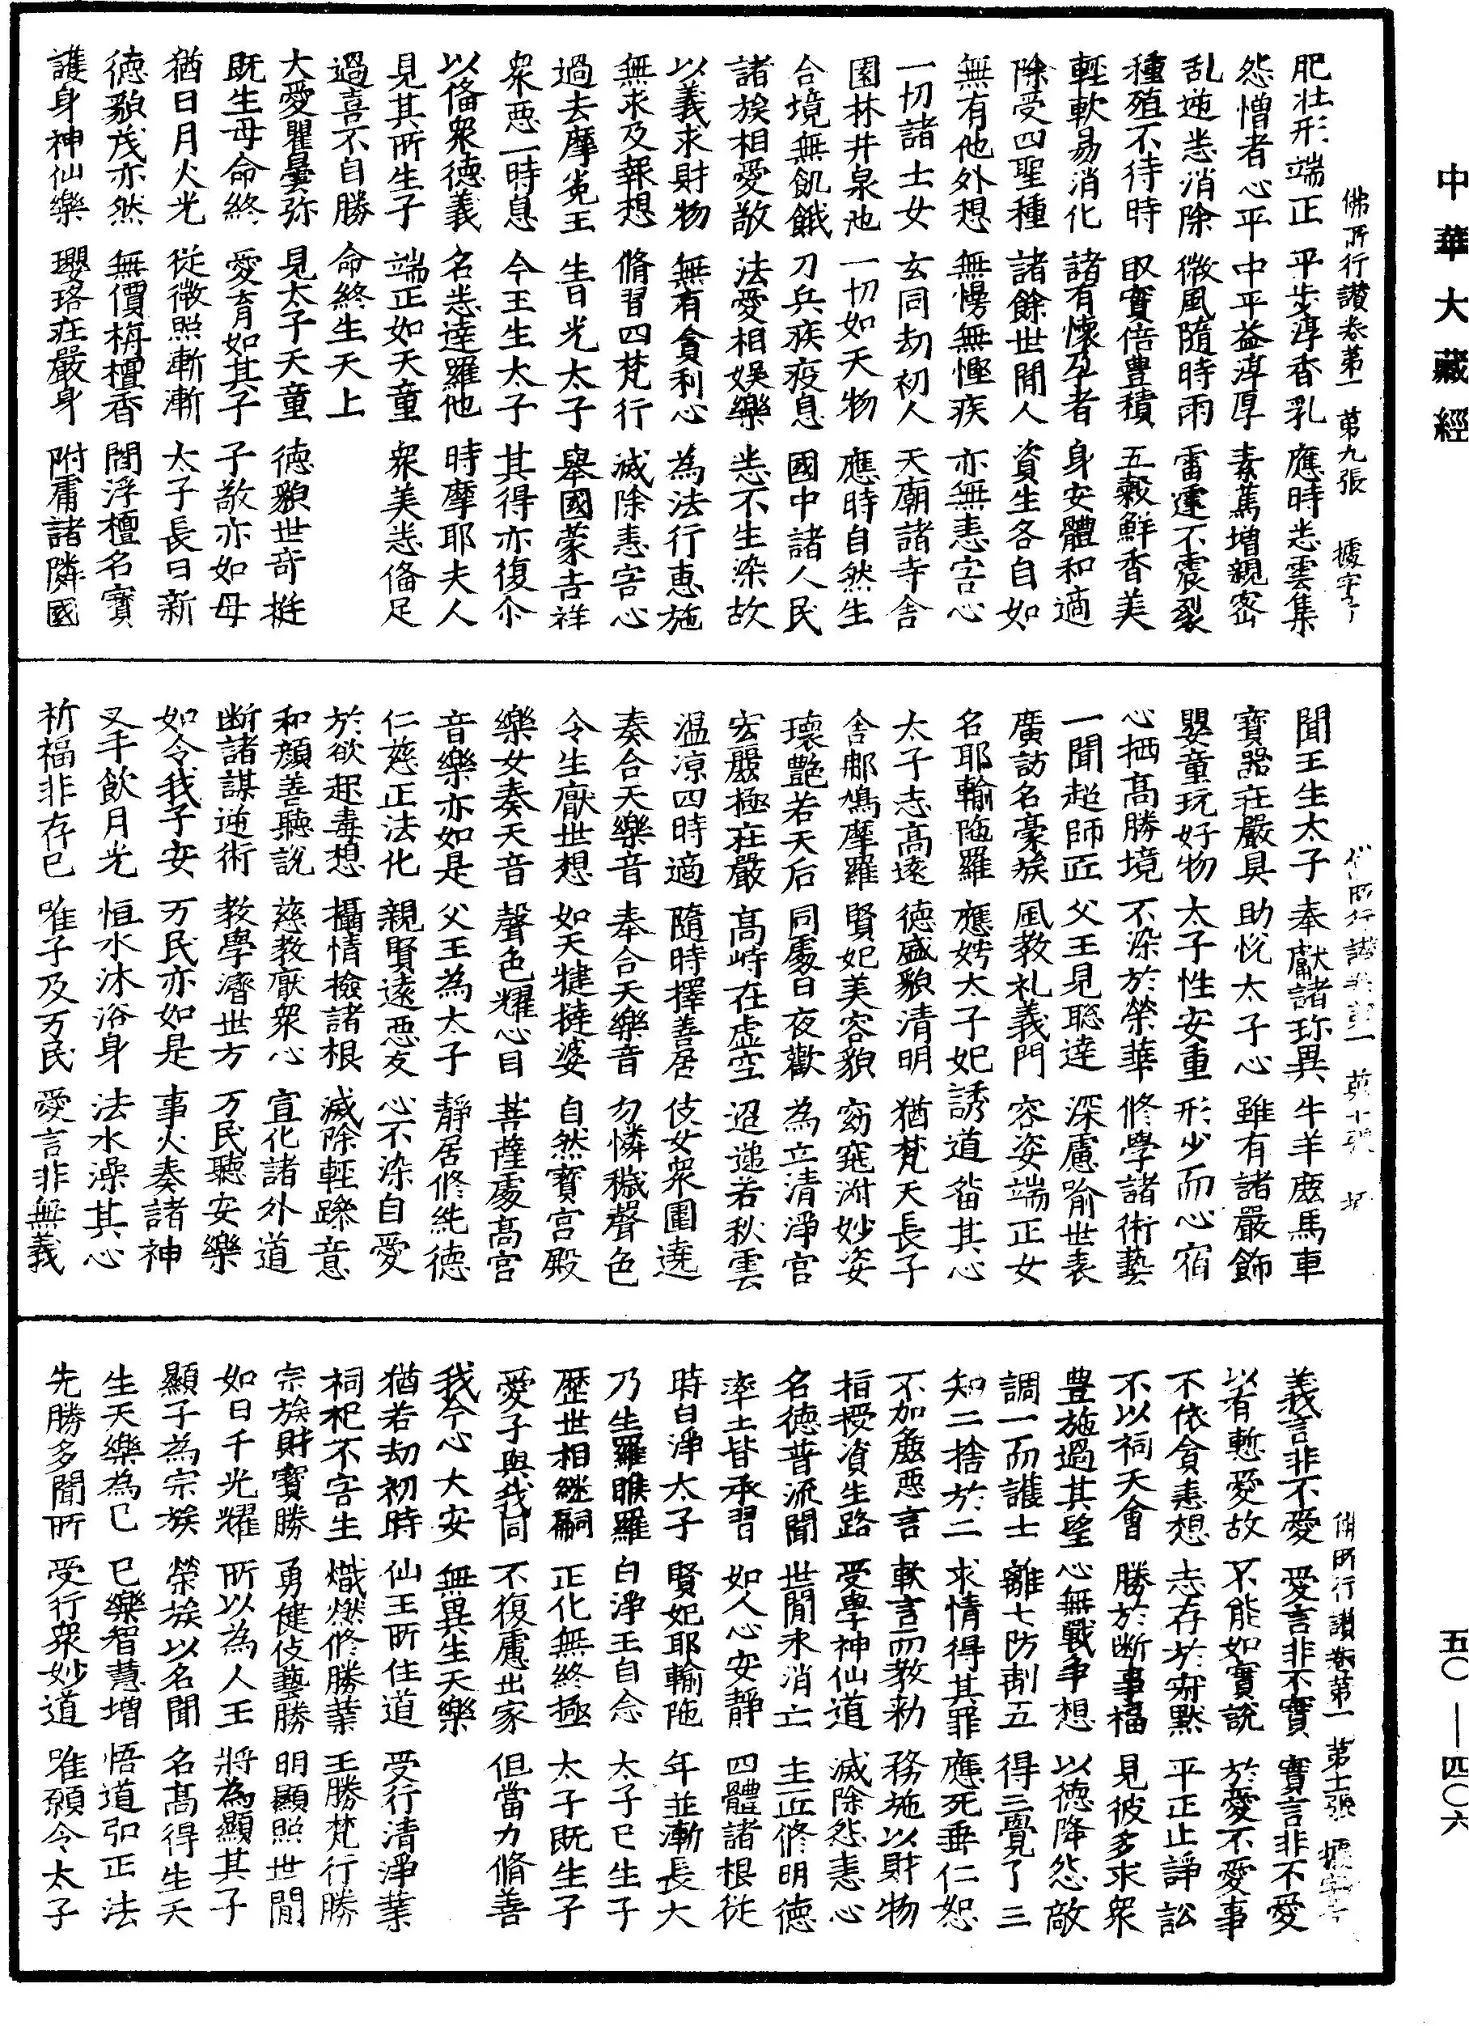 中華大藏經
佛所行讃卷第一 第九張 據字号
肥壯形端正 平步淳香乳 應時悉雲集
怨憎者心平 中平益淳厚 素篤增親密
乱逆悉消除 微風隨時雨 雷霆不震裂
種殖不待時 収實倍豊積 五穀鮮香美
輕軟易消化 諸有懷孕者 身安體和適
除受四聖種 諸餘世間人 資生各自如
無有他外想 無慢無慳疾 亦無恚害心
一切諸士女 玄同劫初人 天廟諸寺舍
園林井泉池 一切如天物 應時自然生
合境無飢餓 刀兵疾疫息 國中諸人民
諸族相愛敬 法愛相娛樂 悉不生染故
以義求財物 無有貪利心 為法行惠施
無求及報想 脩習四梵行 滅除恚害心
過去摩㝹王 生日光太子 舉國蒙吉祥
衆惡一時息 今王生太子 其得亦復尒
以俻衆德義 名悉達羅他 時摩耶夫人
見其所生子 端正如天童 衆美悉俻足
過喜不自勝 命終生天上
大愛瞿曇弥 見太子天童 德貌世奇挺
既生母命終 愛育如其子 子敬亦如母
猶日月火光 從微照漸漸 太子長日新
德貌茂亦然 無價栴檀香 閻浮檀名寳
護身神仙樂 瓔珞莊嚴身 附庸諸隣國
佛所行讃卷第一 第十張
聞王生太子 奉獻諸珎異 牛羊鹿馬車
寳器莊嚴具 助悅太子心 雖有諸嚴飾
嬰童玩好物 太子性安重 形少而心宿
心栖高勝境 不染於榮華 修學諸術藝
一聞超師匠 父王見聡達 深慮喻世表
廣訪名豪族 風教礼義門 容姿端正女
名耶輸陁羅 應娉太子妃 誘道畄其心
太子志高遠 德盛貌清明 猶梵天長子
舍那鳩摩羅 賢妃美容貌 窈窕淑妙姿
瓌艷若天后 同處日夜歡 為立清淨宮
宏麗極莊嚴 高峙在虛空 迢遞若秋雲
温凉四時適 隨時擇善居 伎女衆圍遶
奏合天樂音 奉合天樂音 勿憐穢聲色
令生厭世想 如天犍撻婆 自然寳宮殿
樂女奏天音 聲色耀心目 菩薩處高宮
音樂亦如是 父王為太子 靜居修純德
仁慈正法化 親賢遠惡友 心不染自愛
於欲起毒想 攝情檢諸根 滅除輕躁意
和顏善聽說 慈教厭衆心 宣化諸外道
断諸謀逆術 教學濟世方 万民聽安樂
如令我子安 万民亦如是 事火奏諸神
叉手飲月光 恒水沐浴身 法水澡其心
祈福非存已 唯子及万民 愛言非無義
佛所行讃卷第一 第十一張 據字号
義言非不愛 愛言非不實 實言非不愛
以有慙愛故 不能如實說 於愛不愛事
不依貪恚想 志存於寂黙 平正止諍訟
不以祠天會 勝於断事福 見彼多求衆
豊施過其望 心無戰爭想 以德降怨敵
調一而護士 離七防制五 得三覺了三
知二捨於二 求情得其罪 應死垂仁恕
不加麁惡言 軟言而教勑 務施以財物
指授資生路 受學神仙道 滅除怨恚心
名德普流聞 世間永消亡 主匠修明德
率土皆承習 如人心安靜 四體諸根從
時白淨太子 賢妃耶輸陁 年並漸長大
乃生羅睺羅 白淨王自念 太子已生子
歷世相継嗣 正化無終極 太子既生子
愛子與我同 不復慮出家 但當力脩善
我今心大安 無異生天樂
猶若劫初時 仙王所住道 受行清淨業
祠祀不害生 熾燃修勝業 王勝梵行勝
宗族財寳勝 勇健伎藝勝 明顯照世間
如日千光耀 所以為人王 將為顯其子
顯子為宗族 榮族以名聞 名高得生天
生天樂為已 已樂智慧增 悟道弘正法
先勝多聞所 受行衆妙道 唯願令太子
五〇—四〇六